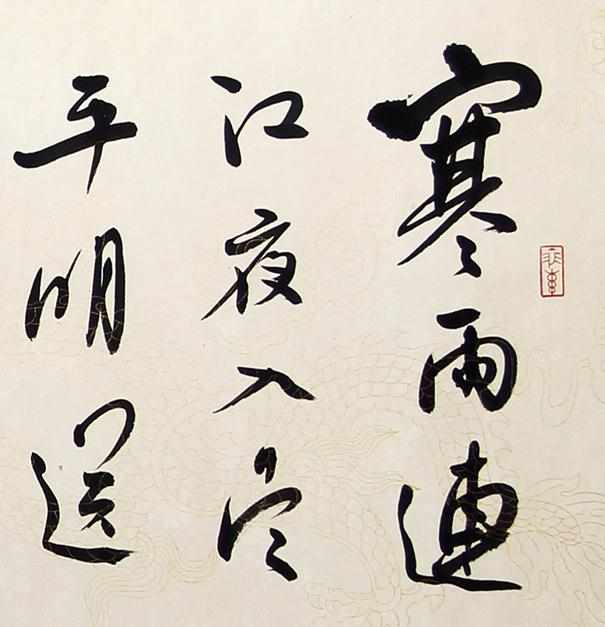 寒雨連
江夜入吳
平明送